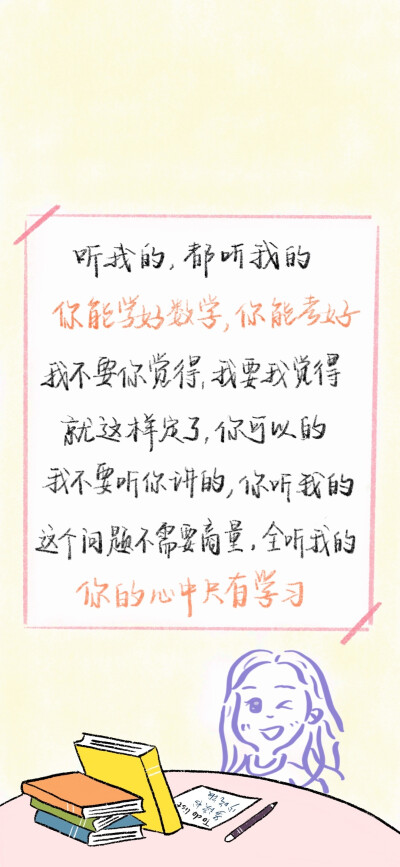 听我的，都听我的
你能学好数学，你能考好
我不要你觉得，我要我觉得
就这样定了，你可以的
我不要听你讲的，你听我的
这个问题不需要商量，全听我的
你的心中只有学习
Todo list